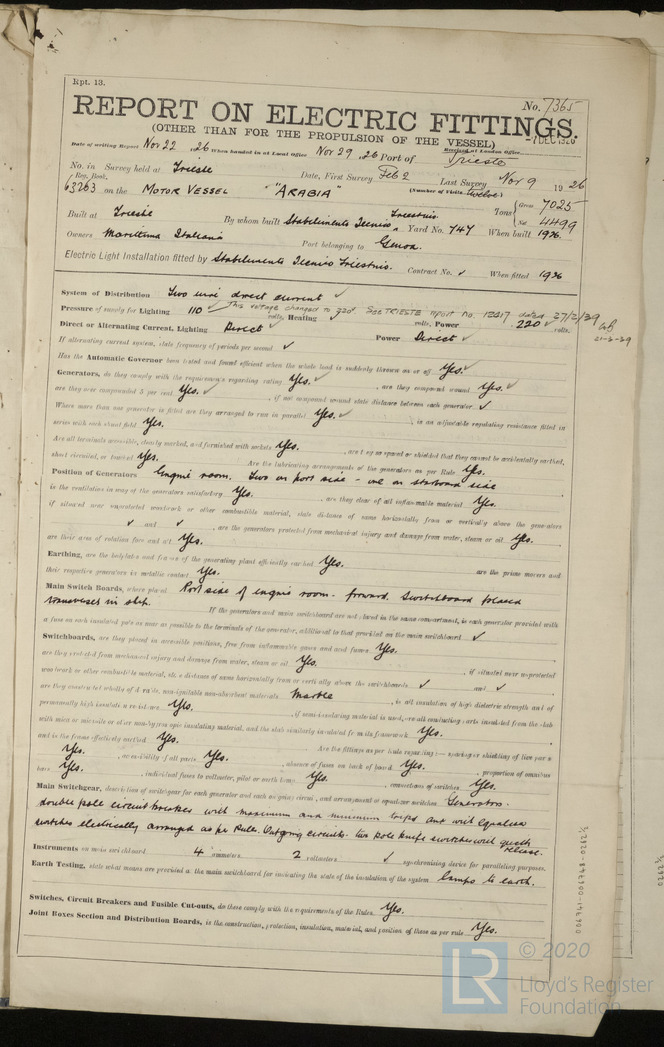 Rpt. 13.
No. 7365
REPORT ON ELECTRIC FITTINGS.
(OTHER THAN FOR THE PROPULSION OF THE VESSEL)
-7 DEC 1926
Received at London Office
Date of writing Report Nov 22 1926 When handed in at Local Office Nov 29 1926 Port of Trieste
No. in Survey held at Trieste Date, First Survey Feb 2 Last Survey Nov 9 1926
Reg. Book.
(Number of Visits twelve)
63263 on the MOTOR VESSEL "ARABIA" Tons { Gross 7025
Net 4499
Built at Trieste By whom built Stabilimento Tecnico Triestino Yard No. 747 When built 1926.
Owners Marittima Italiana Port belonging to Genoa.
Electric Light Installation fitted by Stabilimento Tecnico Triestino. Contract No. ✓ When fitted 1926
System of Distribution Two wire direct current ✓
Pressure of supply for Lighting 110 ✓ volts, Heating ✓ volts, Power 220 ✓ volts.
This voltage changed to 220 ✓ SEE TRIESTE report no. 12217 dated 27/2/39
Direct or Alternating Current, Lighting Direct ✓ Power Direct ✓
If alternating current system, state frequency of periods per second ✓
Has the Automatic Governor been tested and found efficient when the whole load is suddenly thrown on or off Yes. ✓
Generators, do they comply with the requirements regarding rating Yes. ✓, are they compound wound Yes. ✓
are they over compounded 5 per cent. Yes. ✓, if not compound wound state distance between each generator ✓
Where more than one generator is fitted are they arranged to run in parallel Yes. ✓, is an adjustable regulating resistance fitted in
series with each shunt field Yes.
Are all terminals accessible, clearly marked, and furnished with sockets Yes., are they so spaced or shielded that they cannot be accidentally earthed,
short circuited, or touched Yes. Are the lubricating arrangements of the generators as per Rule Yes.
Position of Generators Engine room. Two on port side - one on starboard side
is the ventilation in way of the generators satisfactory Yes., are they clear of all inflammable material Yes.
if situated near unprotected woodwork or other combustible material, state distance of same horizontally from or vertically above the generators
✓ and ✓, are the generators protected from mechanical injury and damage from water, steam or oil Yes.
are their axes of rotation fore and aft Yes.
Earthing, are the bedplates and frames of the generating plant efficiently earthed Yes. are the prime movers and
their respective generators in metallic contact Yes.
Main Switch Boards, where placed Port side of engine room - forward. Switchboard placed
transverses in ship.
If the generators and main switchboard are not placed in the same compartment, is each generator provided with
a fuse on each insulated pole as near as possible to the terminals of the generator, additional to that provided on the main switchboard ✓
Switchboards, are they placed in accessible positions, free from inflammable gases and acid fumes Yes.
are they protected from mechanical injury and damage from water, steam or oil Yes., if situated near unprotected
woodwork or other combustible material, state distance of same horizontally from or vertically above the switchboards ✓ and ✓
are they constructed wholly of durable, non-ignitable non-absorbent materials Marble, is all insulation of high dielectric strength and of
permanently high insulation resistance Yes., if semi-insulating material is used, are all conducting parts insulated from the slab
with mica or micanite or other non-hygroscopic insulating material, and the slab similarly insulated from its framework Yes.
and is the frame effectively earthed Yes. Are the fittings as per Rule regarding:— spacing or shielding of live parts
Yes., accessibility of all parts Yes., absence of fuses on back of board Yes., proportion of omnibus
bars Yes., individual fuses to voltmeter, pilot or earth lamp Yes., connections of switches Yes.
Main Switchgear, description of switchgear for each generator and each outgoing circuit, and arrangement of equalizer switches Generators.
double pole circuit breaker with maximum and minimum trips and with equaliser
switches electrically arranged as per Rule. Outgoing circuits - two pole knife switches with quick
release.
Instruments on main switchboard 4 ammeters 2 voltmeters ✓ synchronising device for paralleling purposes.
Earth Testing, state what means are provided at the main switchboard for indicating the state of the insulation of the system lamps to earth.
Switches, Circuit Breakers and Fusible Cut-outs, do these comply with the requirements of the Rules Yes.
Joint Boxes Section and Distribution Boards, is the construction, protection, insulation, material, and position of these as per rule Yes.
© 2020
LR
Lloyd's Register
Foundation